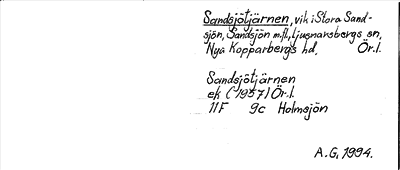 Sandsjötjärnen, vik i Stora Sand-
sjön, Sandsjön m.fl., Ljusnarsbergs sn,
Nya Kopparbergs hd, Ör.l.
Sandsjötjärnen
ek (1957) Ör.l.
11F 9c Holmsjön
A.G. 1994.